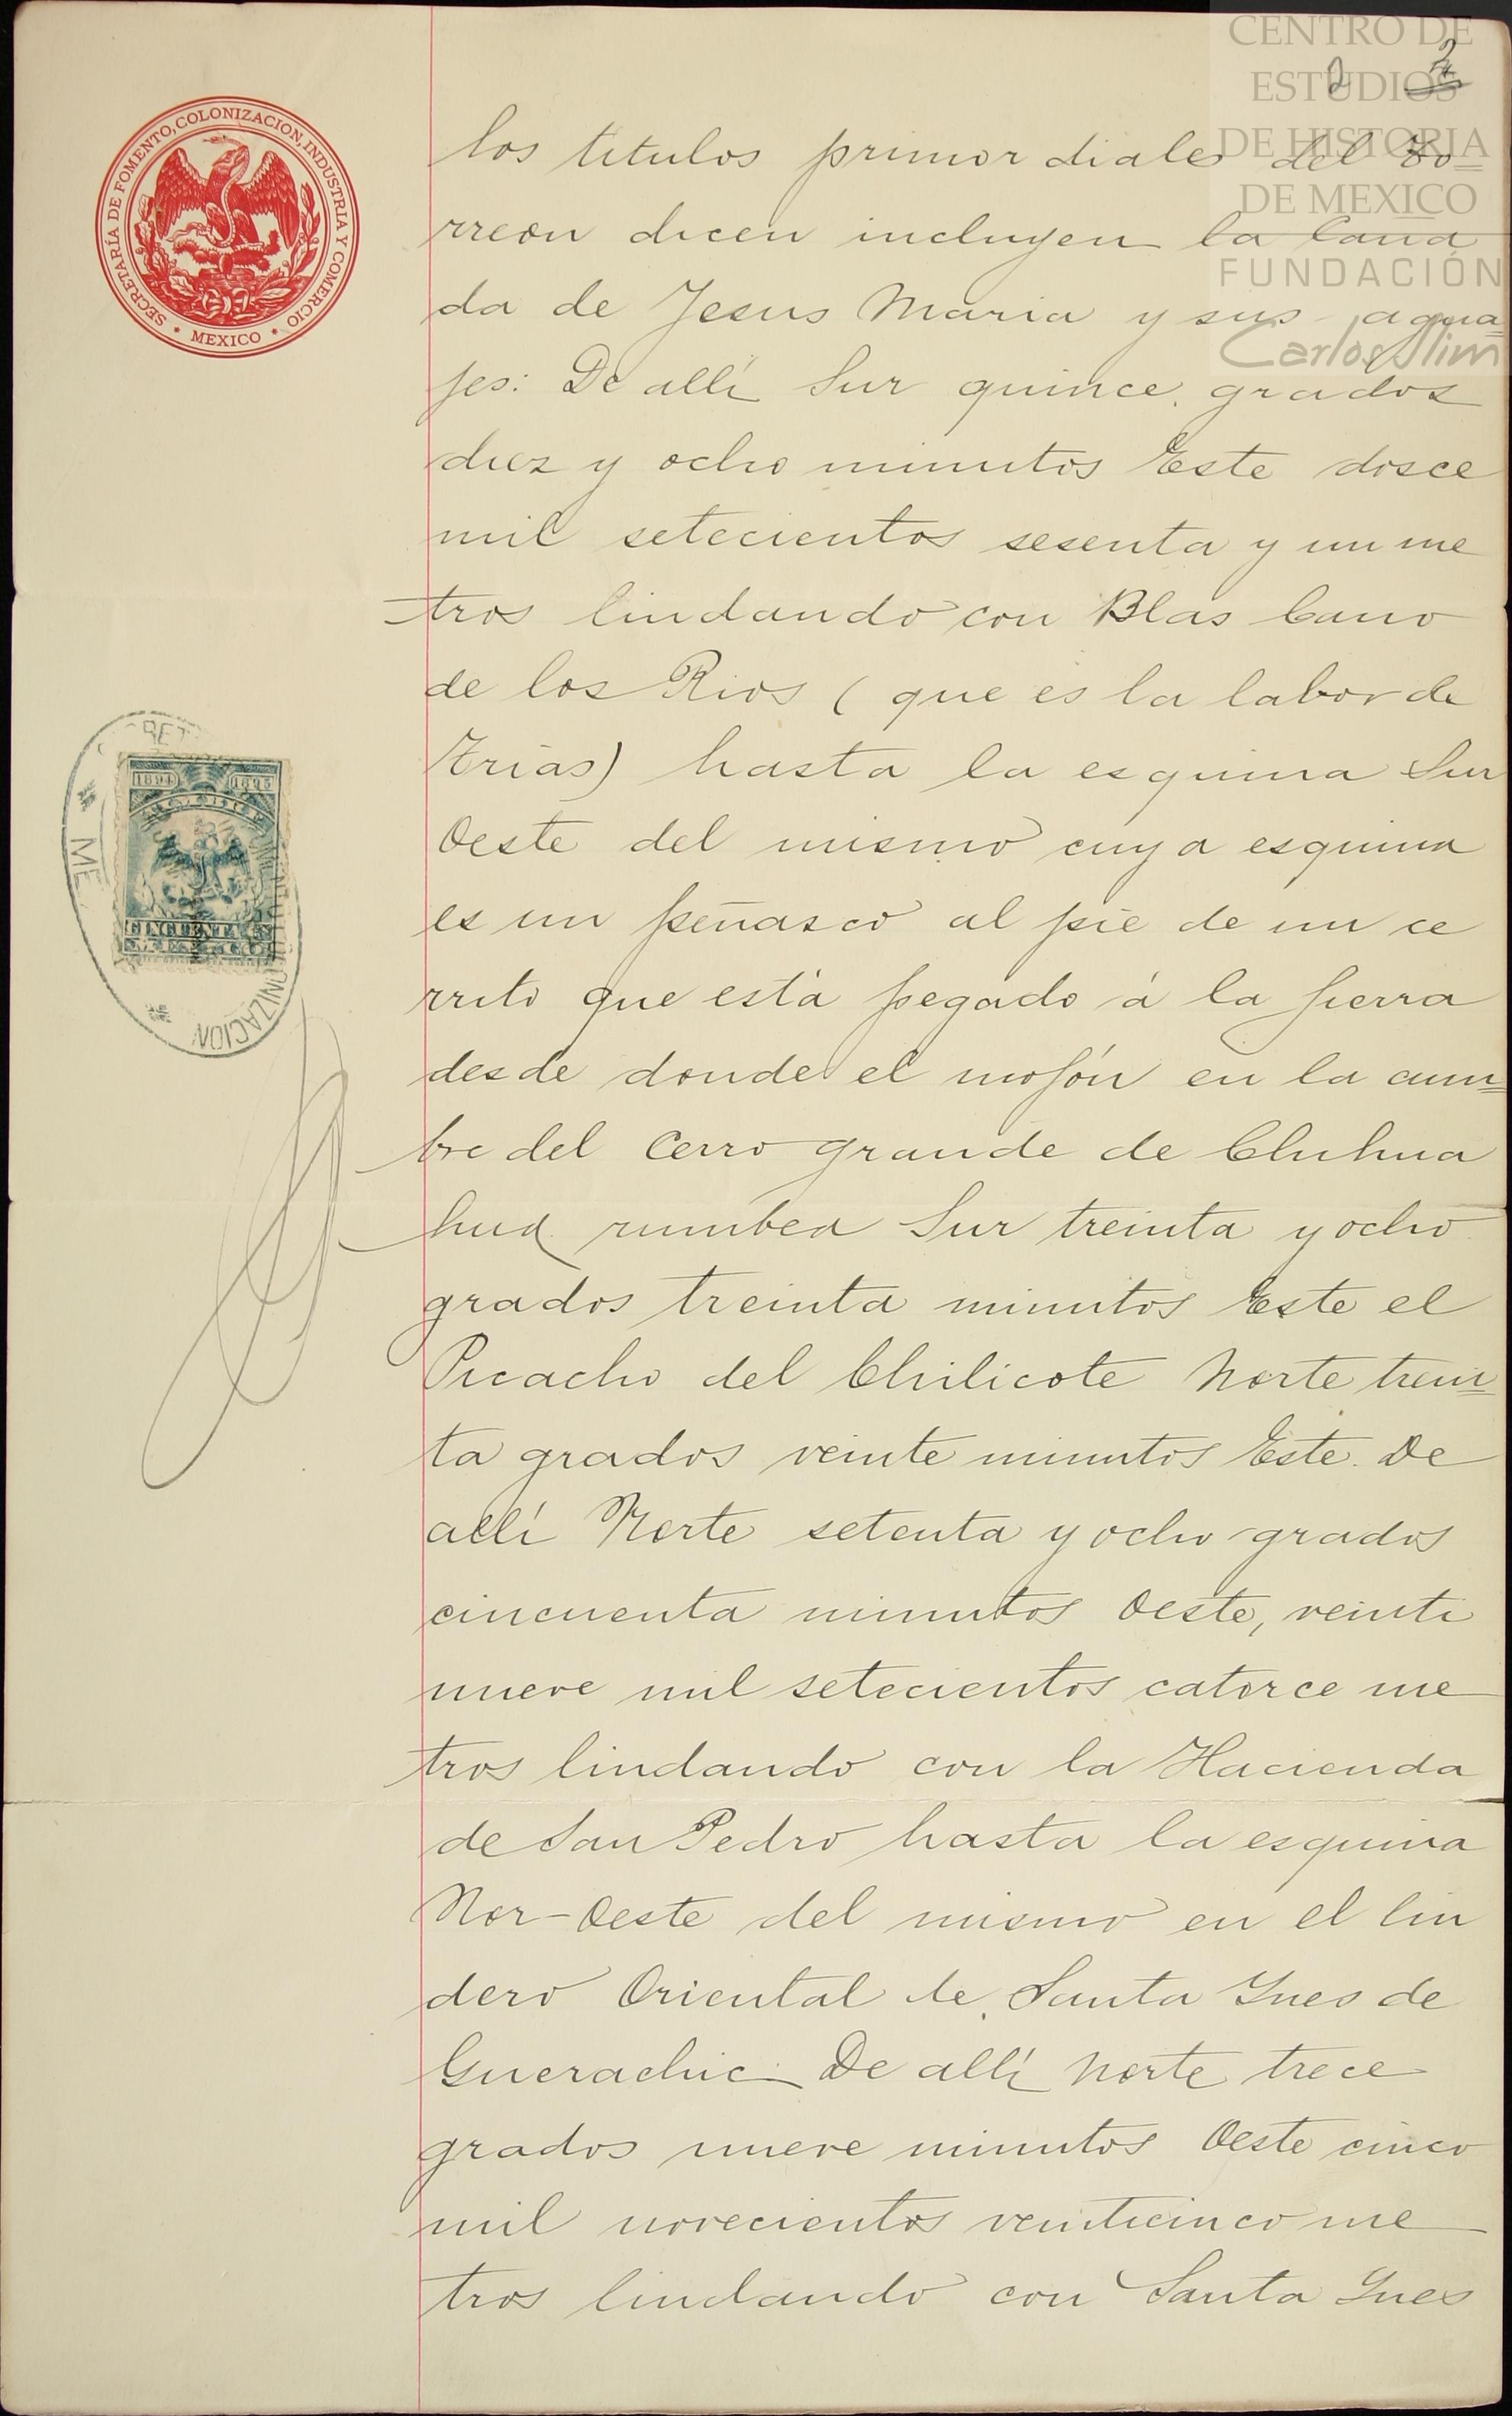 CENTRO DE
ESTUDIOS
DE HISTORIA
DE MEXICO
FUNDACIÓN
Carlos Slim
2
SECRETARÍA DE FOMENTO, COLONIZACION, INDUSTRIA Y COMERCIO
* MEXICO *
los titulos primordiales del To=
rreon dicen incluyen la Caña
da de Jesus Maria y sus agua=
jes: De allí Sur quince grados
diez y ocho minutos Este dosce
mil setecientos sesenta y un me
tros lindando con Blas Cano
de los Rios (que es la labor de
Trias) hasta la esquina Sur
Oeste del mismo cuya esquina
es un peñasco al pie de un ce
rrito que está pegado á la sierra
desde donde el mojón en la cum=
bre del Cerro grande de Chihua
hua rumbea Sur treinta y ocho
grados treinta minutos Este el
Picacho del Chilicote Norte trein=
ta grados veinte minutos Este. De
allí Norte setenta y ocho grados
cincuenta minutos Oeste, veinti
nueve mil setecientos catorce me
tros lindando con la Hacienda
de San Pedro hasta la esquina
Nor-Oeste del mismo en el lin
dero Oriental de Santa Ynes de
Guerachic. De allí Norte trece
grados nueve minutos Oeste cinco
mil novecientos veinticinco me
tros lindando con Santa Ynes
1894 1895
CINCUENTA
RET
ME
NIZACION